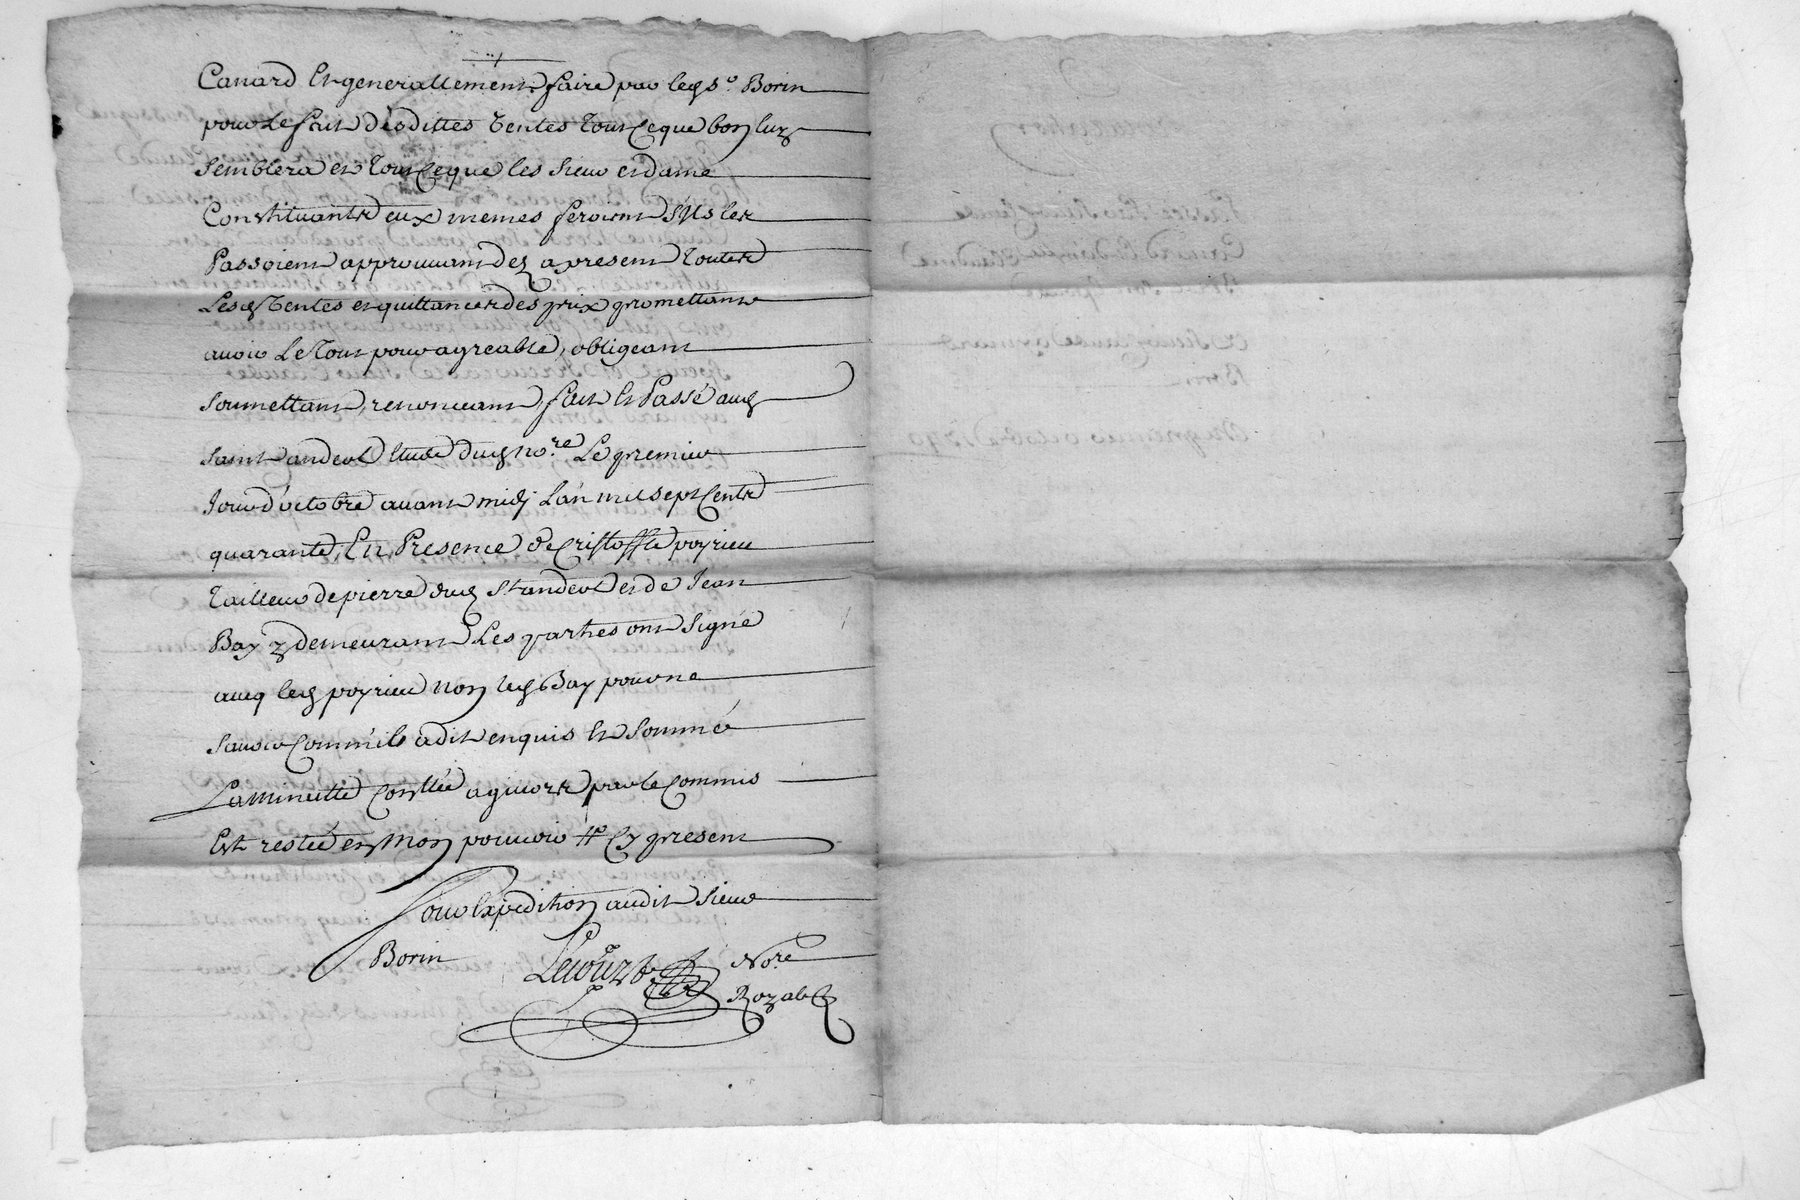 Canard Et generallement faire par led s.r Borin
pour Le fait desdittes ventes tout ce que bon luy
semblera et tout ce que les sieur et dame
Constituants eux memes feroient s'ils les
Passoient approuvant dez a present toutes
Lesd ventes et quittances des prix promettant
avoir Le tout pour agreable, obligeant
soumettant, renonceant, fait Et Passé aud
saint andeol Etude dud no.re Le premier
Jour d'octobre avant midy L'an mil sept Cents
quarante, En Presence de Cristoffle poyrieu
tailleur de pierre dud St andeol et de Jean
Bay y demeurant Les parties ont signé
avec led poyrieu non led Bay pour ne
savoir Comm'il a dit enquis Et sommé
La minutte Con.llée a givors par le Commis
Est restée en mon pouvoir Cy present
pour Expedition audit sieur
Borin
No.re
Royal